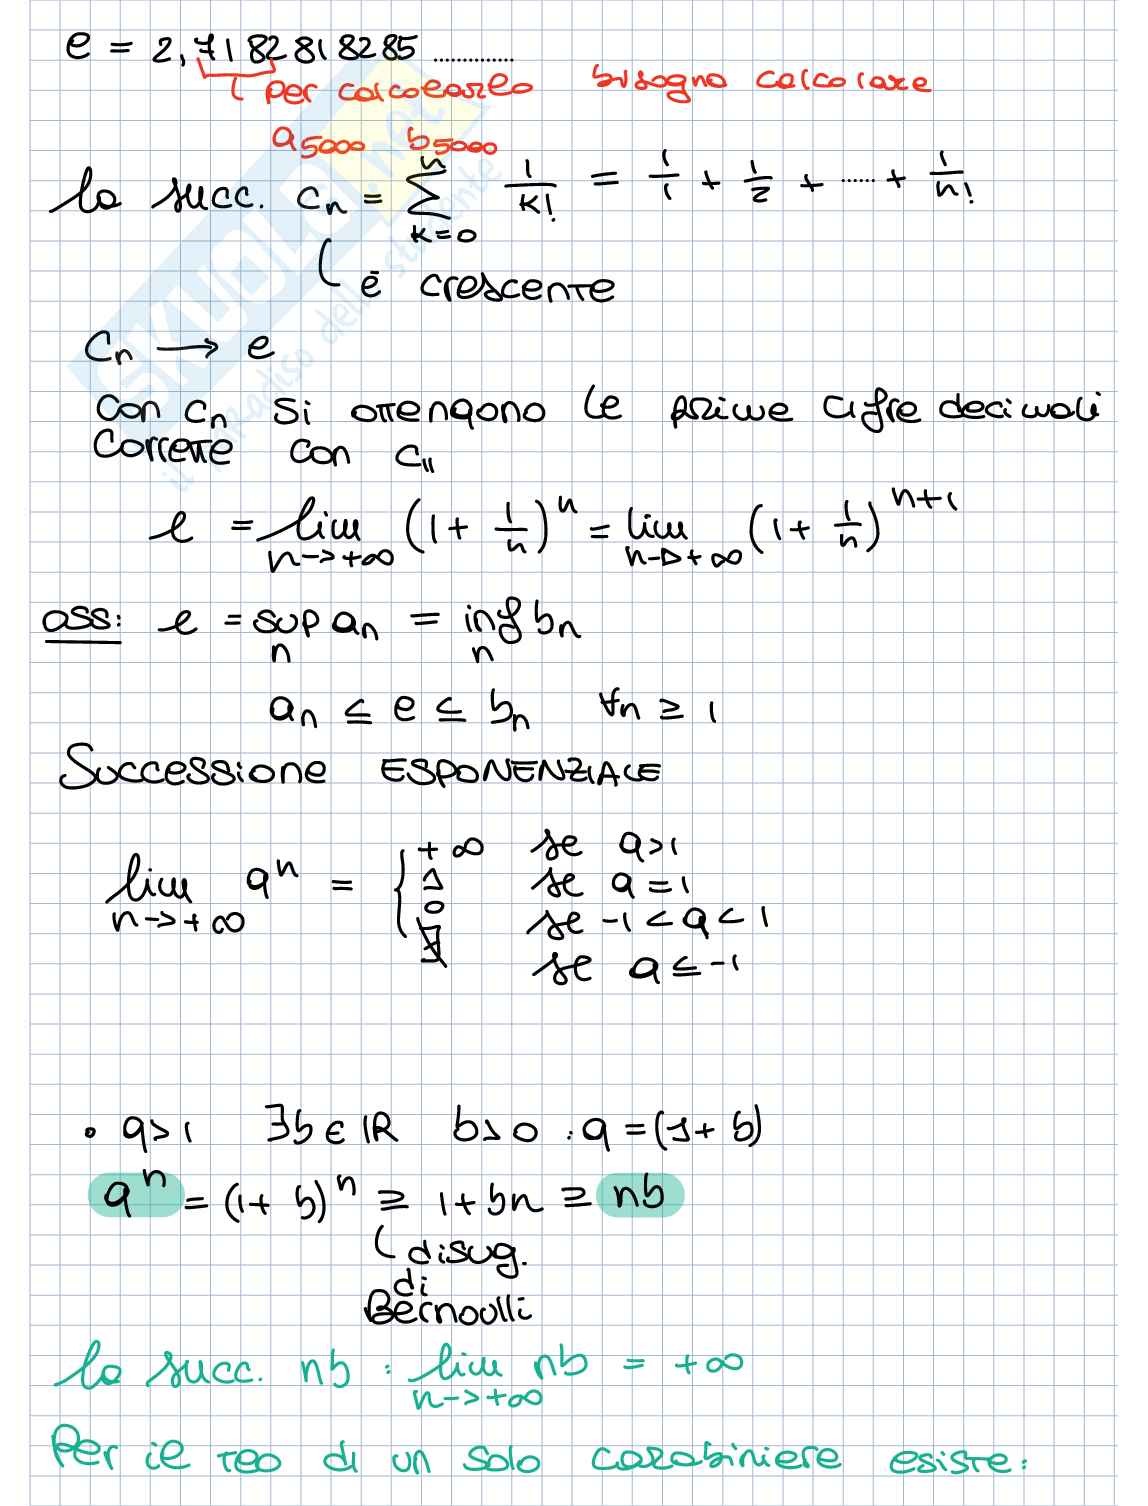 e = 2,7182818285 ..............
per calcolarlo bisogna calcolare
a₅₀₀₀ b₅₀₀₀
la succ. cₙ = ∑ₖ₌₀ⁿ 1/k! = 1/1 + 1/2 + ...... + 1/n!
è crescente
cₙ → e
con cₙ si ottengono le prime cifre decimali
corrette con c₁₁
e = lim n->+∞ (1 + 1/n)ⁿ = lim n->+∞ (1 + 1/n)ⁿ⁺¹
oss: e = sup n aₙ = inf n bₙ
aₙ ≤ e ≤ bₙ ∀n ≥ 1
Successione ESPONENZIALE
lim n->+∞ aⁿ = { +∞ se a>1
1 se a = 1
0 se -1 < a < 1
∄ se a ≤ -1
• a>1 ∃b ∈ ℝ b>0 : a = (1+b)
aⁿ = (1+b)ⁿ ≥ 1+bn ≥ nb
disug.
di
Bernoulli
la succ. nb : lim n->+∞ nb = +∞
Per il teo di un solo carabiniere esiste:
SKUOLA.net
il paradiso dello studente